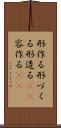 形作る形づく
る形造る
容作る